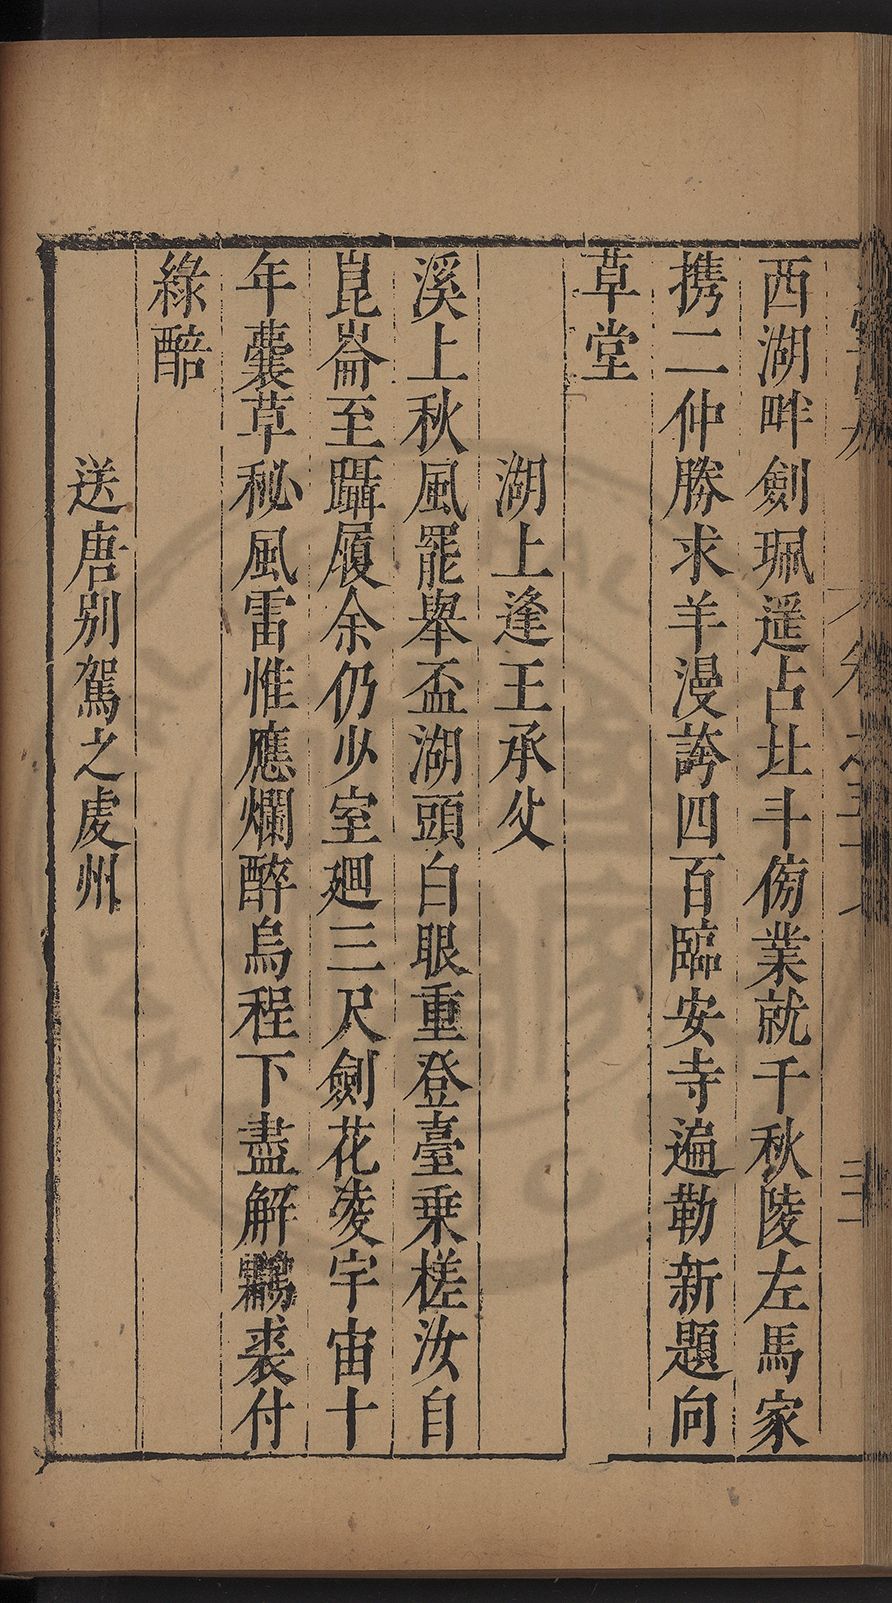 西湖畔劍珮遥占北斗傍業就千秋陵左馬家
携二仲勝求羊漫誇四百臨安寺遍勒新題向
草堂
湖上逢王承父
溪上秋風罷舉盃湖頭白眼重登臺乗槎汝自
崑崙至躡屐余仍少室廻三尺劍花凌宇宙十
年囊草秘風雷惟應爛醉烏程下盡解鷫裘付
綠醅
送唐别駕之處州